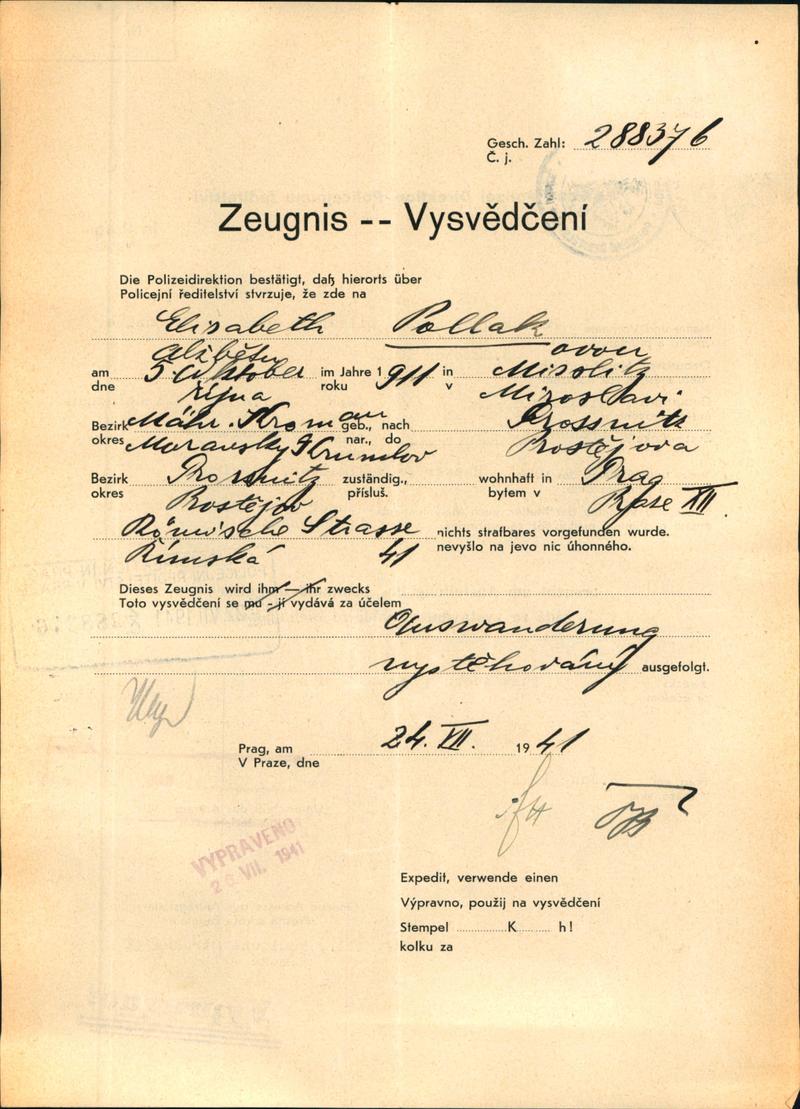 Gesch. Zahl: 288376
Č. j.
Zeugnis -- Vysvědčení
Die Polizeidirektion bestätigt, daß hierorts über
Policejní ředitelství stvrzuje, že zde na
Elisabeth Pollak
Alžbětu ovou
am 5. Oktober im Jahre 1911 in Misslitz
dne října roku v Miroslavi
Bezirk Mähr. Kroman geb., nach Prossnitz
okres Moravský Krumlov nar., do Prostějova
Bezirk Prossnitz zuständig., wohnhaft in Prag
okres Prostějov přísluš. bytem v Praze XII
Römische Strasse nichts strafbares vorgefunden wurde.
Římská 41 nevyšlo na jevo nic úhonného.
Dieses Zeugnis wird ihm — ihr zwecks
Toto vysvědčení se mu - jí vydává za účelem
Auswanderung
vystěhování ausgefolgt.
Prag, am 24. VII. 1941
V Praze, dne
VYPRAVENO
26. VII. 1941
Expedit, verwende einen
Výpravno, použij na vysvědčení
Stempel K h!
kolku za